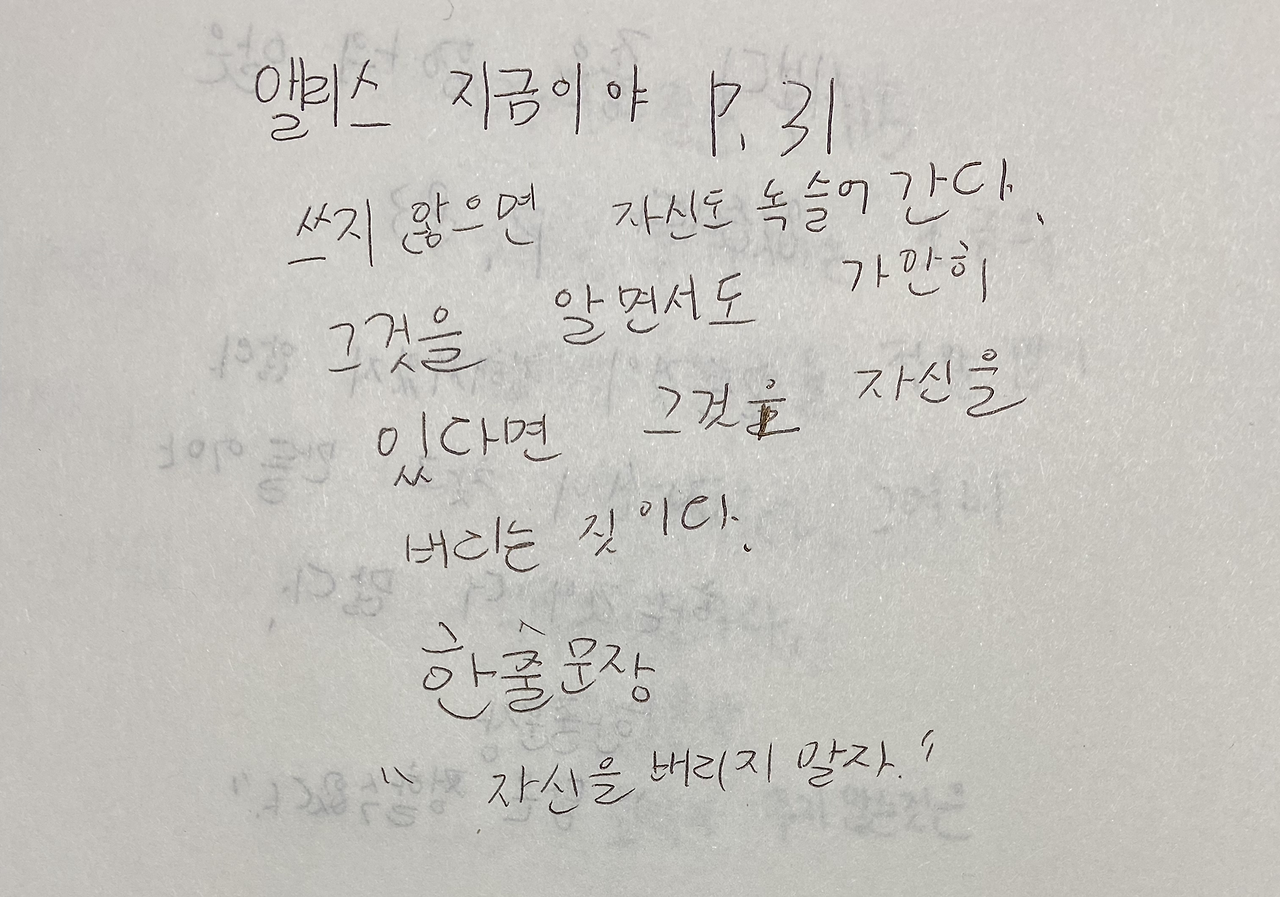 앨리스 지금이야 P. 31
쓰지 않으면 자신도 녹슬어 간다.
그것을 알면서도 가만히
있다면 그것은 자신을
버리는 짓이다.
한줄문장
" 자신을 버리지 말자."